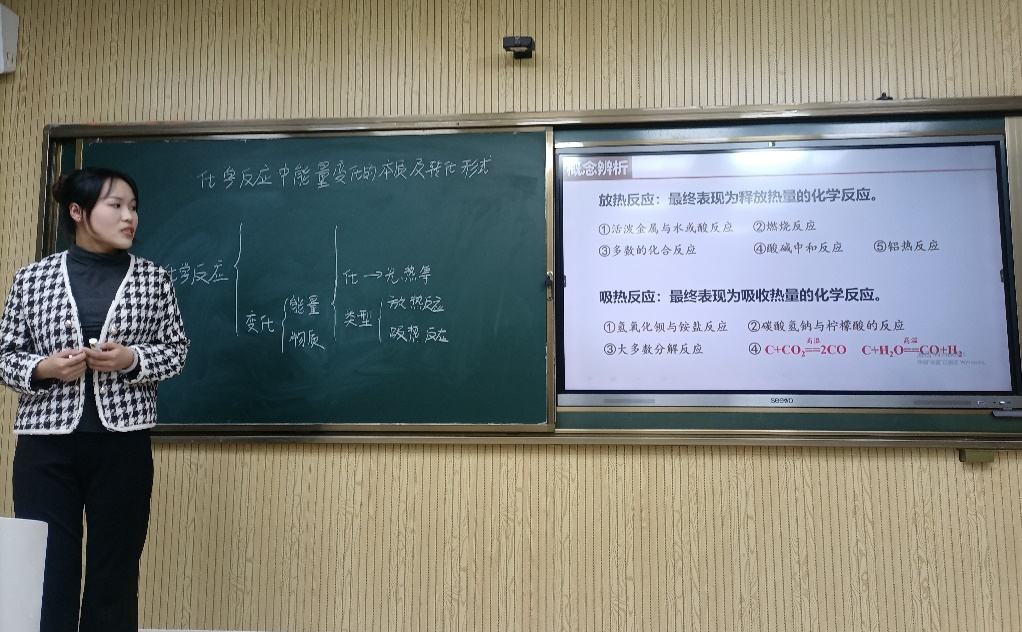 化学反应中能量变化的本质及转化形式
化学反应
变化
能量
物质
化→光热等
类型
放热反应
吸热反应
概念辨析
放热反应：最终表现为释放热量的化学反应。
①活泼金属与水或酸反应 ②燃烧反应
③多数的化合反应 ④酸碱中和反应 ⑤铝热反应
吸热反应：最终表现为吸收热量的化学反应。
①氢氧化钡与铵盐反应 ②碳酸氢钠与柠檬酸的反应
③大多数分解反应 ④ C+CO₂ 高温 2CO C+H₂O 高温 CO+H₂
seewo